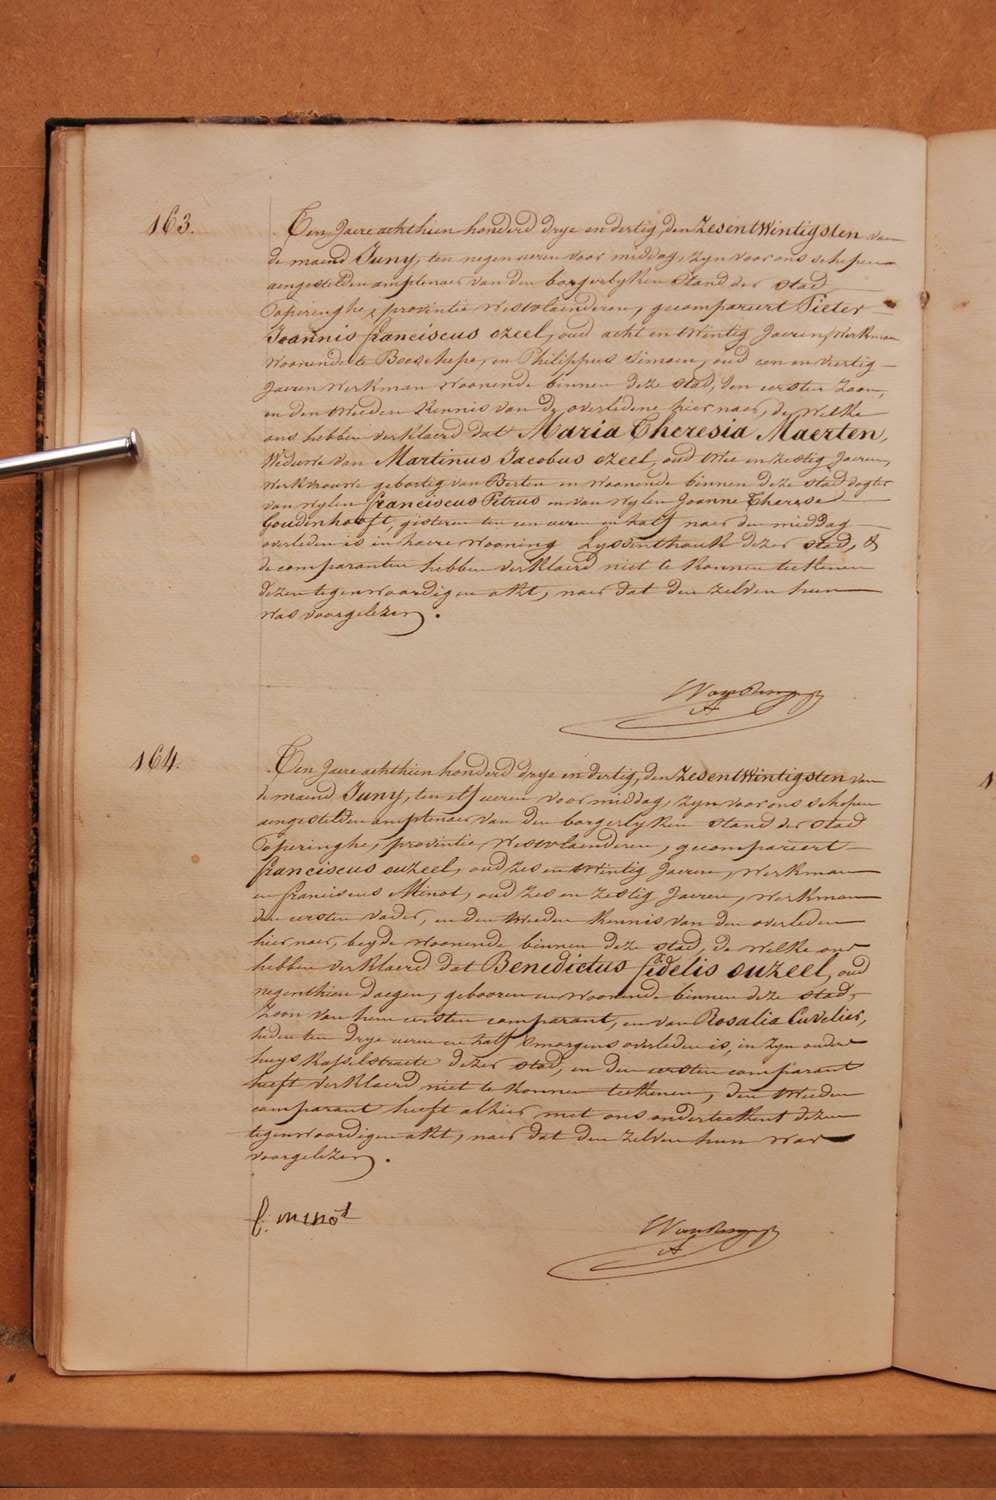 163.
Ten Jaere achthien honderd drye en dertig, den zesentwintigsten van
de maend Juny, ten negen ueren voor middag, zyn voor ons schepen
aengestelden amptenaer van den borgerlyken stand der stad
Poperinghe, provintie Westvlaenderen, gecompareert Pieter
Joannis franciscus ozeel, oud acht en twintig Jaeren, werkman
woonende te Boeschepe, en Philippus Simoen, oud een en veertig
Jaeren werkman woonende binnen deze stad, den eersten zoon,
en den tweeden kennis van de overledene hier naer, de welke
ons hebben verklaerd dat Maria Theresia Maerten,
weduwe van Martinus Jacobus ozeel, oud twee en zestig Jaeren,
werkvrouwe gebortig van Berten en woonende binnen deze stad dogter
van wylen franciscus Petrus en van wylen Joanne Therese
Goudenhooft, gisteren ten een ueren en half naer den middag
overleden is in haere wooning Lyssenthoek dezer stad, &
de comparanten hebben verklaerd niet te konnen teekenen
dezen tegenwoordigen akt, naer dat den zelven hun
was voorgelezen.
164.
Ten Jaere achthien honderd drye en dertig, den zesentwintigsten van
de maend Juny, ten elf ueren voor middag, zyn voor ons schepen
aengestelden amptenaer van den borgerlyken stand der stad
Poperinghe, provintie Westvlaenderen, gecompareert
franciscus ouzeel, oud zes en twintig Jaeren, werkman
en franciscus Minot, oud zes en zestig Jaeren, werkman
den eersten vader, en den tweeden kennis van den overleden
hier naer, beyde woonende binnen deze stad, de welke ons
hebben verklaerd dat Benedictus fidelis ouzeel, oud
negenthien daegen, gebooren en woonende binnen deze stad,
zoon van hem eersten comparant, en van Rosalia Cuvelier,
heden ten drye ueren en half smorgens overleden is, in zyn ouders
huys kasselstraete dezer stad, en den eersten comparant
heeft verklaerd niet te konnen teekenen, den tweeden
comparant heeft alhier met ons onderteekent dezen
tegenwoordigen akt, naer dat den zelven hun was
voorgelezen.
f. minot